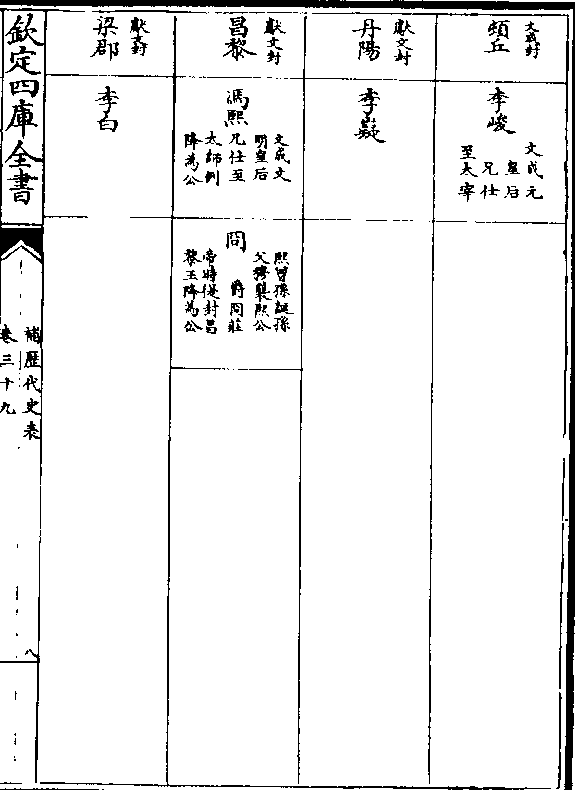 文成封
頓丘
李峻
文成元
皇后
兄仕
至太宰
獻文封
丹陽
李嶷
獻文封
昌黎
馮熙
文成文
明皇后
兄仕至
太師例
降為公
冏
熙曾孫誕孫
父穆襲熙公
爵冏莊
帝時從封昌
黎王降為公
獻文封
梁郡
李白
欽定四庫全書
補歷代史表
卷三十九
八